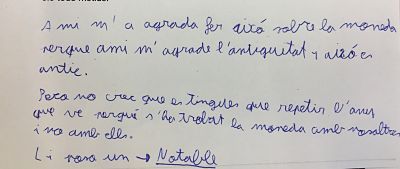 A mi m'a agrada fer aixó sobre la moneda
perque ami m'agrade l'antiguitat y aixó es
antic.
Pero no crec que es tingeles que repetir l'any
que ve perqué s'ha trobat la moneda amb nosaltres
i no amb ells.
Li posa un → Notable